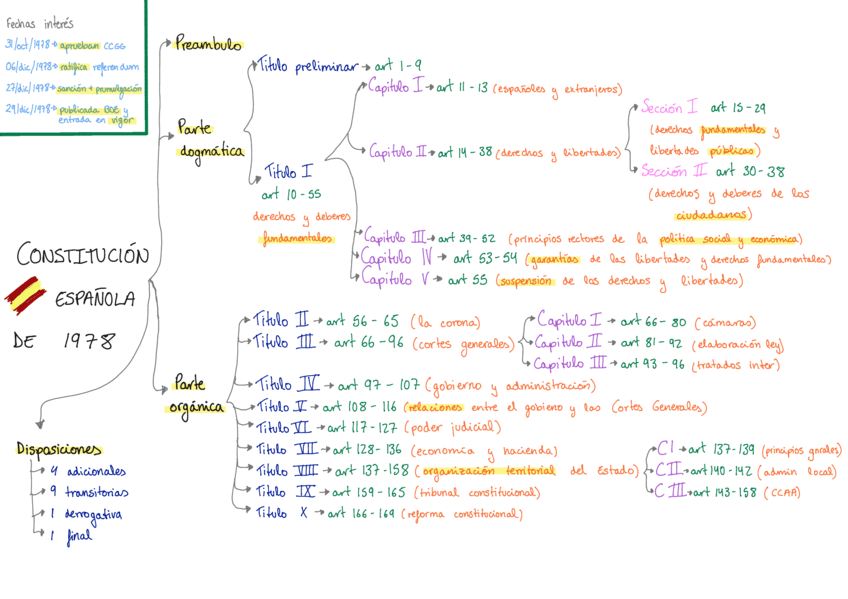 Fechas interés
31/oct/1978→ aprueban CCGG
06/dic/1978→ ratifica referendum
27/dic/1978→ sanción + promulgación
29/dic/1978→ publicada BOE y
entrada en vigor
CONSTITUCIÓN
ESPAÑOLA
DE 1978
Preambulo
Parte
dogmática
Titulo preliminar → art 1-9
Titulo I
art 10-55
derechos y deberes
fundamentales
Capitulo I → art 11-13 (españoles y extranjeros)
Capitulo II → art 14-38 (derechos y libertades)
Sección I art 15-29
(derechos fundamentales y
libertades públicas)
Sección II art 30-38
(derechos y deberes de los
ciudadanos)
Capitulo III → art 39-52 (principios rectores de la politica social y económica)
Capitulo IV → art 53-54 (garantías de las libertades y derechos fundamentales)
Capitulo V → art 55 (suspensión de los derechos y libertades)
Parte
orgánica
Titulo II → art 56-65 (la corona)
Titulo III → art 66-96 (cortes generales)
Capitulo I → art 66-80 (cámaras)
Capitulo II → art 81-92 (elaboración ley)
Capitulo III → art 93-96 (tratados inter)
Titulo IV → art 97-107 (gobierno y administración)
Titulo V → art 108-116 (relaciones entre el gobieno y las Cortes Generales)
Titulo VI → art 117-127 (poder judicial)
Titulo VII → art 128-136 (economía y hacienda)
Titulo VIII → art 137-158 (organización territorial del Estado)
CI → art 137-139 (principios gnrales)
CII → art 140-142 (admin local)
CIII → art 143-158 (CCAA)
Titulo IX → art 159-165 (tribunal constitucional)
Titulo X → art 166-169 (reforma constitucional)
Disposiciones
4 adicionales
9 transitorias
1 derrogativa
1 final